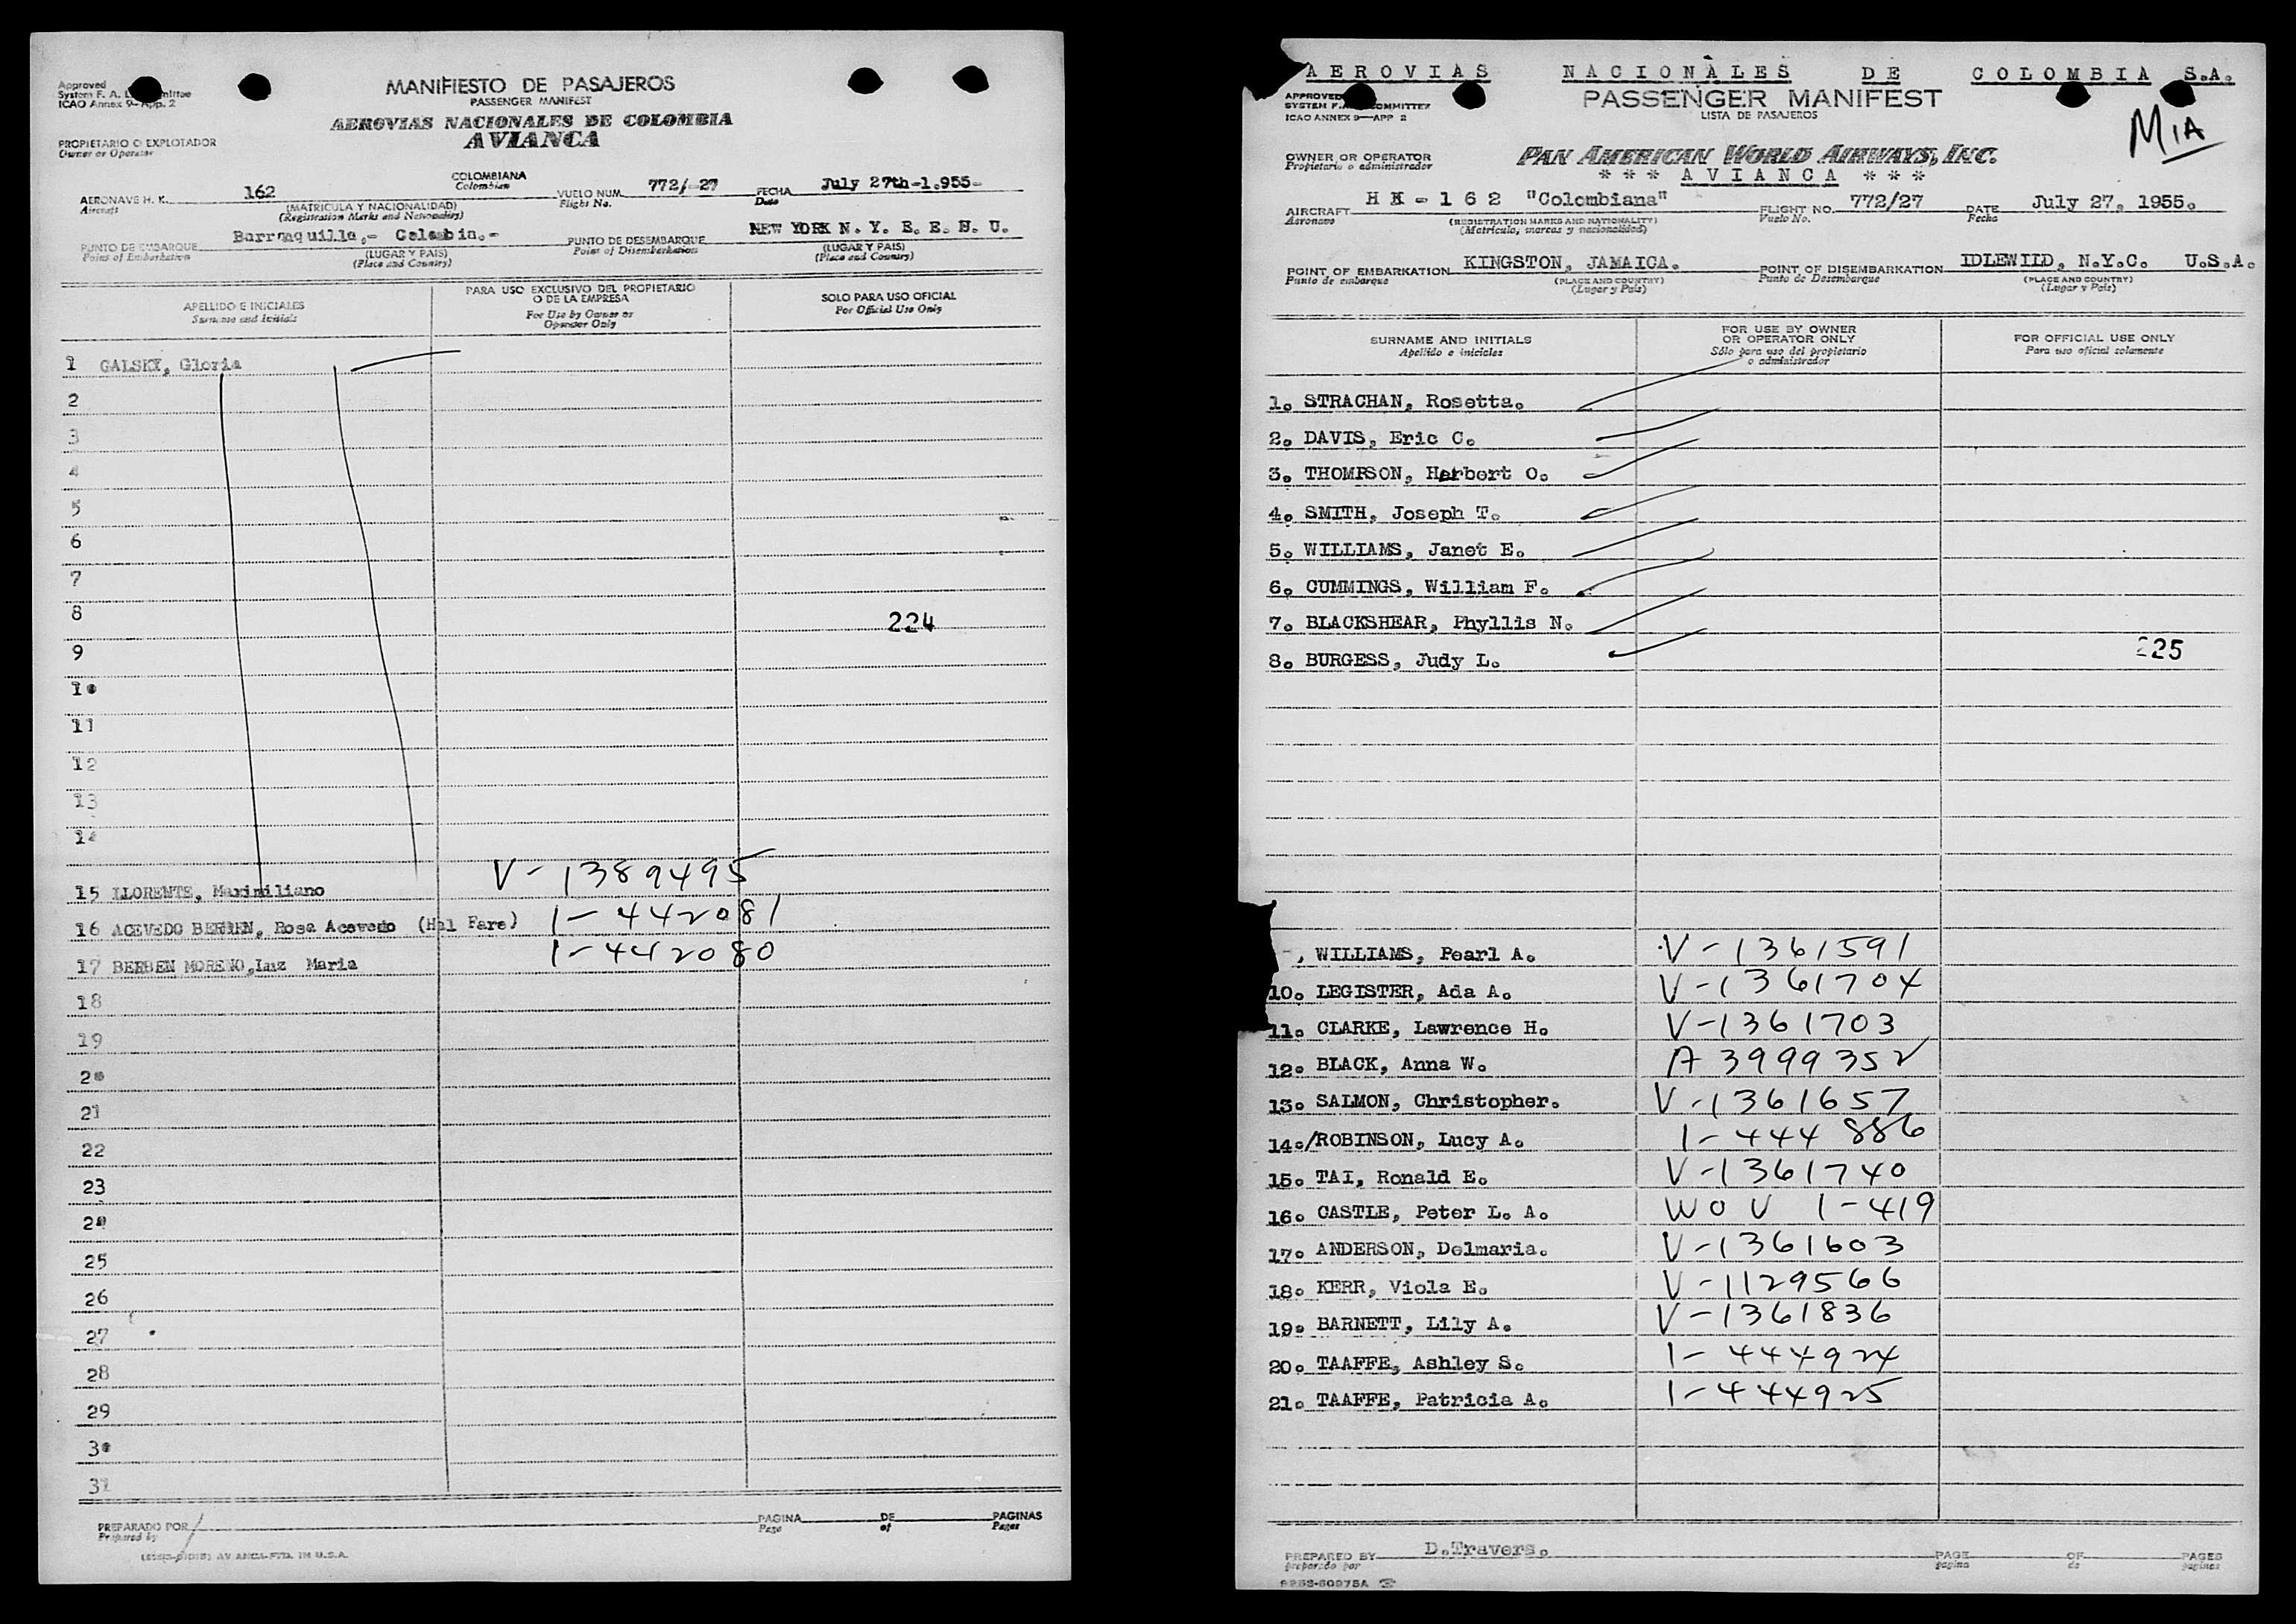 Approved
System F. A. L.
ICAO Annex 9- App. 2
MANIFIESTO DE PASAJEROS
PASSENGER MANIFEST
AEROVIAS NACIONALES DE COLOMBIA
AVIANCA
PROPIETARIO O EXPLOTADOR
Owner or Operator
AERONAVE H. K. 162 COLOMBIANA VUELO NUM. 772/-27 FECHA July 27th-1.955-
Aircraft Colombian Flight No. Date
(MATRICULA Y NACIONALIDAD)
(Registration Marks and Nationality)
PUNTO DE EMBARQUE Barranquilla,- Colombia.- PUNTO DE DESEMBARQUE NEW YORK N. Y. E. E. U. U.
Point of Embarkation Point of Disembarkation
(LUGAR Y PAIS) (LUGAR Y PAIS)
(Place and Country) (Place and Country)
APELLIDO E INICIALES
Surname and Initials
PARA USO EXCLUSIVO DEL PROPIETARIO
O DE LA EMPRESA
For Use by Owner or
Operator Only
SOLO PARA USO OFICIAL
For Official Use Only
1 GALSKY, Gloria
2
3
4
5
6
7
8 224
9
10
11
12
13
14
15 LLORENTE, Maximiliano V-1389495
16 ACEVEDO BERBEN, Rosa Acevedo (Hal Fare) 1-442081
17 BERBEN MORENO,Luz Maria 1-442080
18
19
20
21
22
23
24
25
26
27
28
29
30
31
PREPARADO POR PAGINA DE PAGINAS
Prepared by Page of Pages
AVIANCA-PTD. IN U.S.A.
AEROVIAS NACIONALES DE COLOMBIA S.A.
APPROVED
SYSTEM F.A.L. COMMITTEE
ICAO ANNEX 9—APP 2
PASSENGER MANIFEST
LISTA DE PASAJEROS
MIA
OWNER OR OPERATOR PAN AMERICAN WORLD AIRWAYS, INC.
Propietario o administrador
* * * AVIANCA * * *
AIRCRAFT HK-162 "Colombiana" FLIGHT NO. 772/27 DATE July 27, 1955.
Aeronave Vuelo No. Fecha
(REGISTRATION MARKS AND NATIONALITY)
(Matrícula, marcas y nacionalidad)
POINT OF EMBARKATION KINGSTON, JAMAICA. POINT OF DISEMBARKATION IDLEWILD, N.Y.C. U.S.A.
Punto de embarque Punto de Desembarque
(PLACE AND COUNTRY) (PLACE AND COUNTRY)
(Lugar y País) (Lugar y País)
SURNAME AND INITIALS
Apellido e iniciales
FOR USE BY OWNER
OR OPERATOR ONLY
Sólo para uso del propietario
o administrador
FOR OFFICIAL USE ONLY
Para uso oficial solamente
1. STRACHAN, Rosetta.
2. DAVIS, Eric C.
3. THOMPSON, Herbert O.
4. SMITH, Joseph T.
5. WILLIAMS, Janet E.
6. CUMMINGS, William F.
7. BLACKSHEAR, Phyllis N.
8. BURGESS, Judy L. 225
WILLIAMS, Pearl A. V-1361591
10. LEGISTER, Ada A. V-1361704
11. CLARKE, Lawrence H. V-1361703
12. BLACK, Anna W. A 3999352
13. SALMON, Christopher. V-1361657
14./ROBINSON, Lucy A. 1-444886
15. TAI, Ronald E. V-1361740
16. CASTLE, Peter L. A. WOV 1-419
17. ANDERSON, Delmaria. V-1361603
18. KERR, Viola E. V-1129566
19. BARNETT, Lily A. V-1361836
20. TAAFFE, Ashley S. 1-444924
21. TAAFFE, Patricia A. 1-444925
PREPARED BY D.Travers. PAGE OF PAGES
preparado por página de páginas
9253-60975A